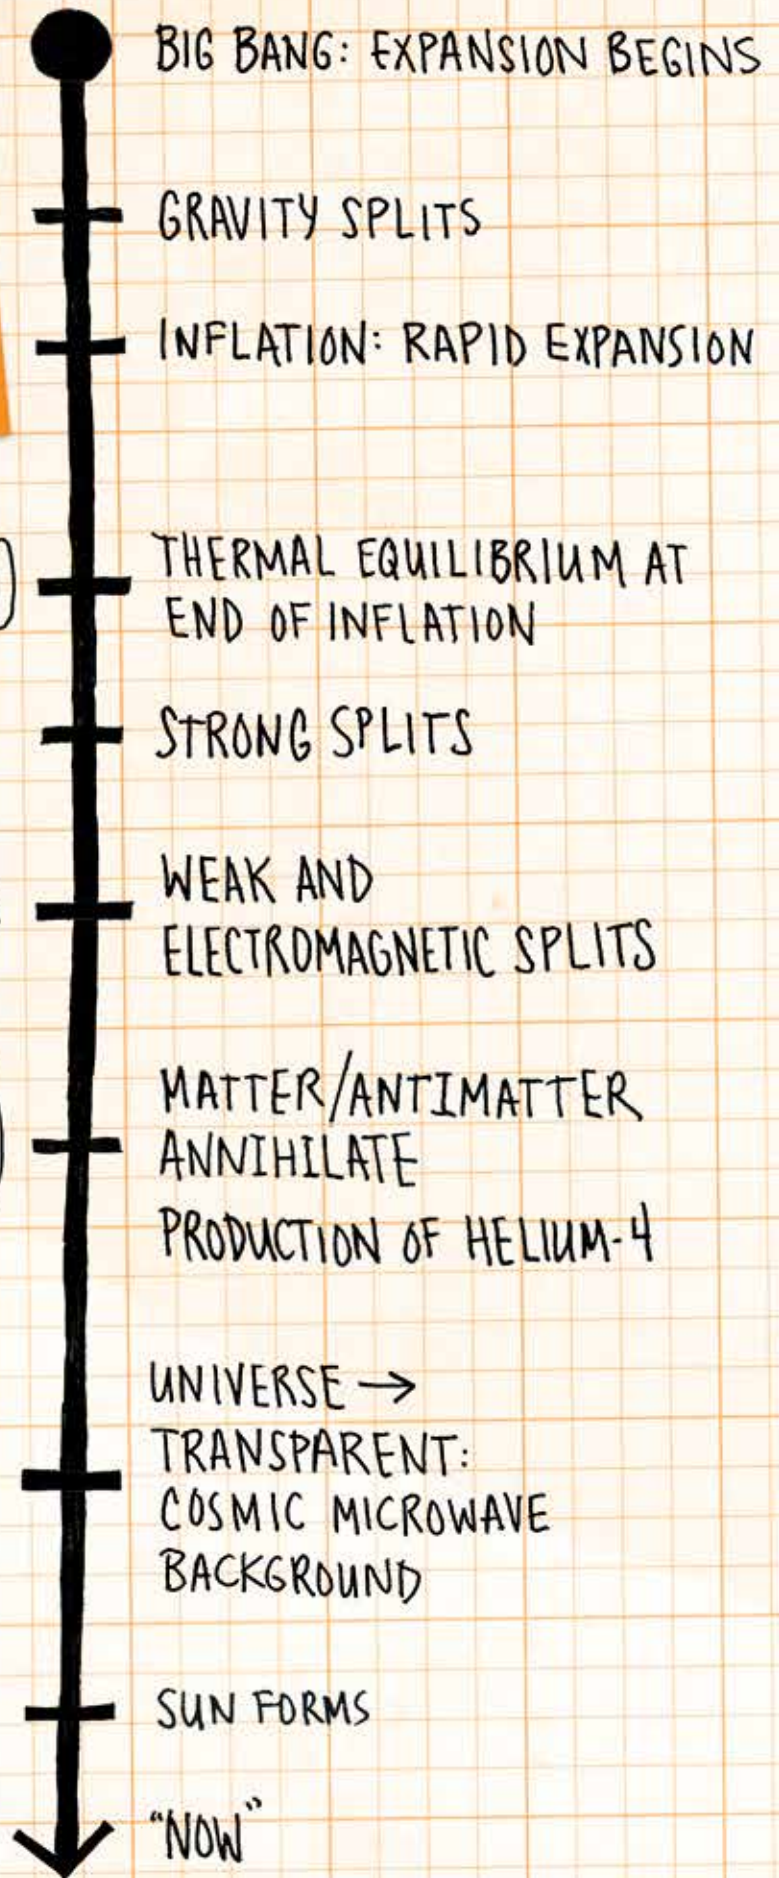 BIG BANG: EXPANSION BEGINS
GRAVITY SPLITS
INFLATION: RAPID EXPANSION
THERMAL EQUILIBRIUM AT
END OF INFLATION
STRONG SPLITS
WEAK AND
ELECTROMAGNETIC SPLITS
MATTER/ANTIMATTER
ANNIHILATE
PRODUCTION OF HELIUM-4
UNIVERSE →
TRANSPARENT:
COSMIC MICROWAVE
BACKGROUND
SUN FORMS
"NOW"